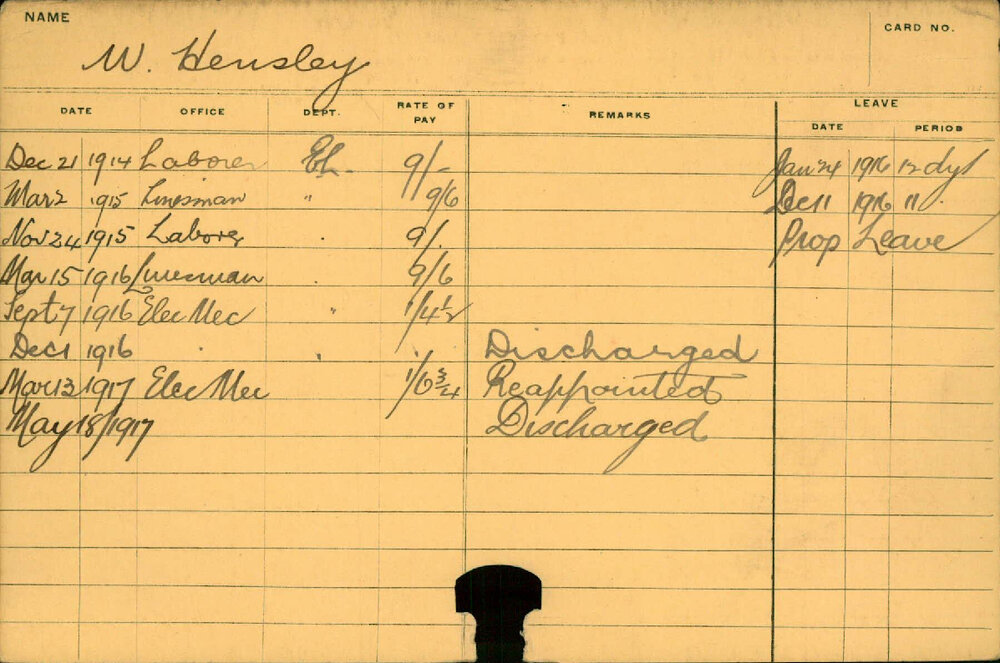 NAME
CARD NO.
W. Hensley
DATE OFFICE DEPT. RATE OF PAY REMARKS LEAVE
DATE PERIOD
Dec 21 1914 Laborer EL. 9/- Jan 24 1916 12 dys
Mar 2 1915 Linesman " 9/6 Dec 11 1916 11 .
Nov 24 1915 Laborer . 9/. Prop Leave
Mar 15 1916 Linesman . 9/6
Sept 7 1916 Elec Mec " 1/4½
Dec 1 1916 . . . Discharged
Mar 13 1917 Elec Mec 1/6¾ Reappointed
May 18/1917 Discharged